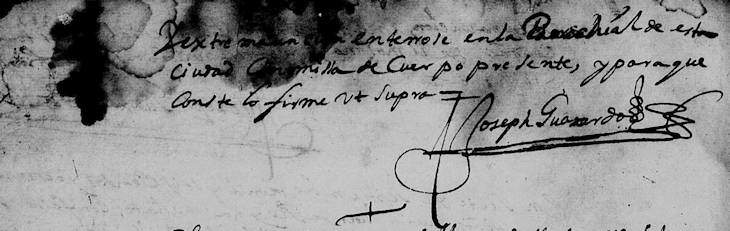 y extremauncion enterrose en la Parrochial de esta
ciudad Con missa de Cuerpo presente, y para que
Conste lo firme Vt Supra
Joseph Guaxardo